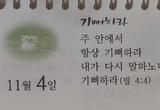 기뻐하라
주 안에서
항상 기뻐하라
내가 다시 말하노니
기뻐하라(빌 4:4)
11월 4일